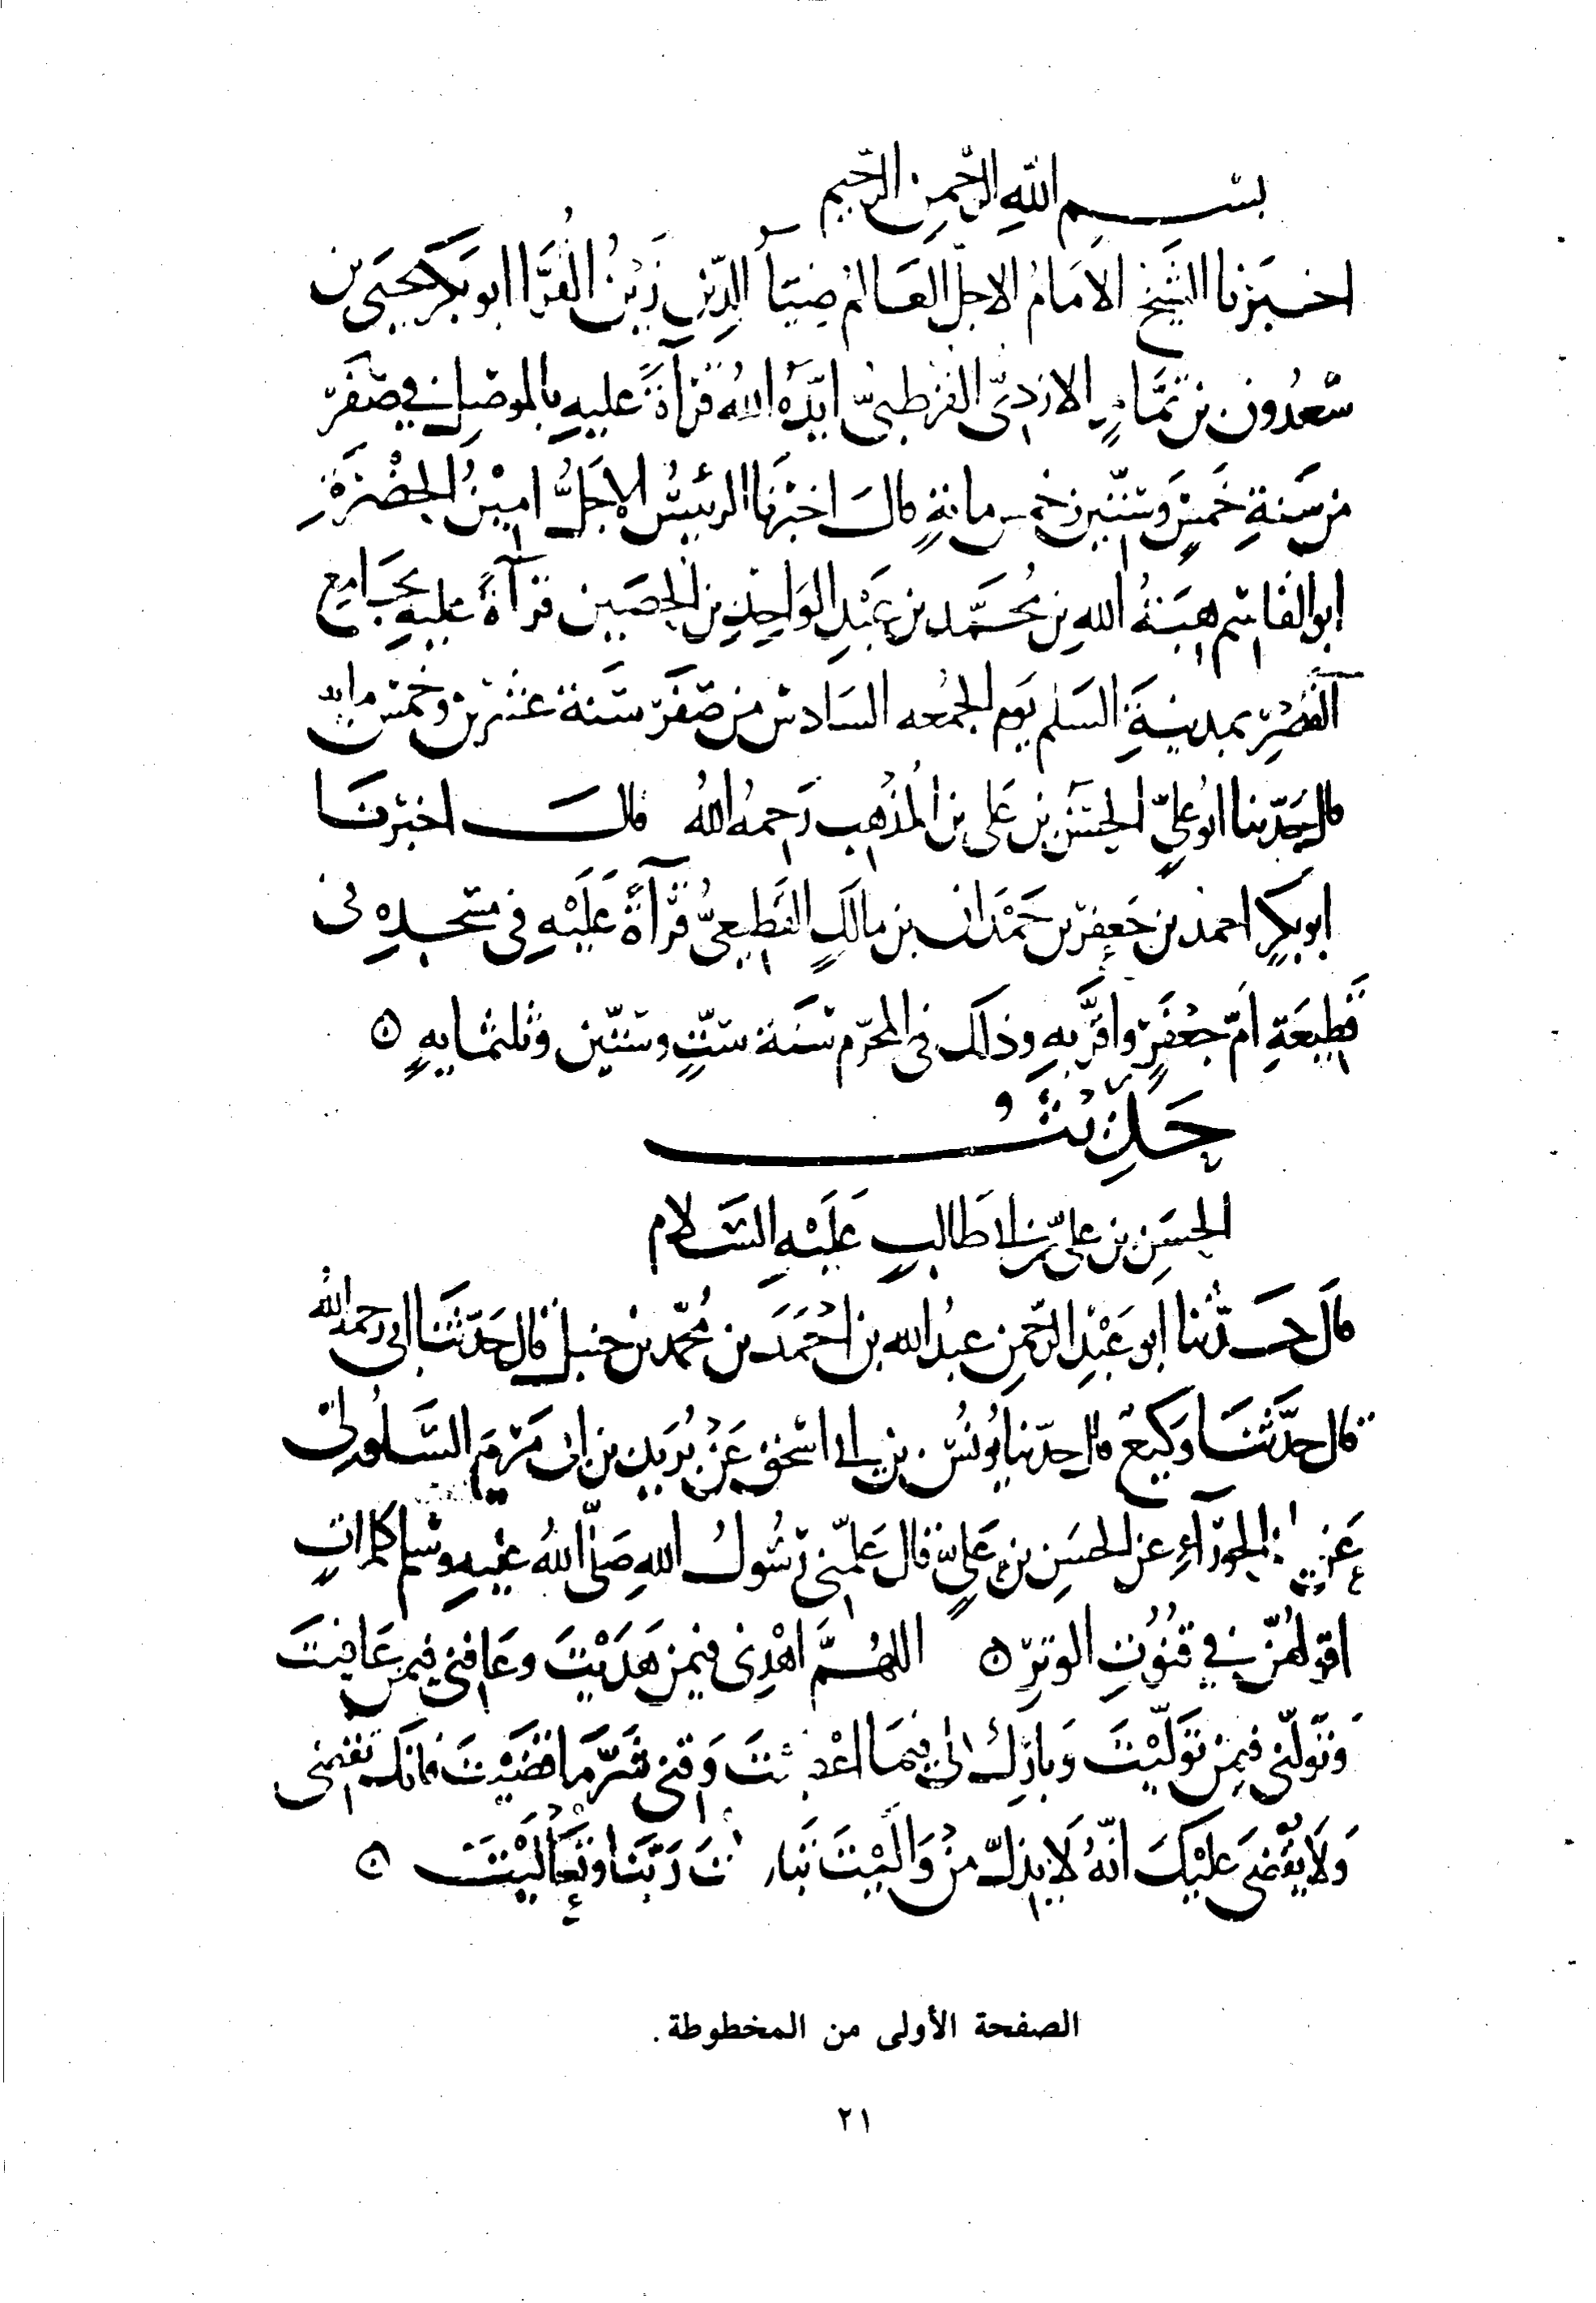 بسم الله الرحمن الرحيم
اخبرنا الشيخ الامام الاجل العالم ضيآ الدين زين القرا ابو بكر يحيى بن
سعدون بن تمام الازدي القرطبي ايده الله قرآة عليه بالموصل في صفر
من سنة خمس وستين وخمس مائة قال اخبرنا الرئيس الاجل امين الحضرة
ابو القاسم هبة الله بن محمد بن عبد الواحد بن الحصين قرآة عليه بجامع
القصر بمدينة السلم يوم الجمعه السادس من صفر سنة عشرين وخمس مايه
قال حدثنا ابو علي الحسن بن على بن المذهب رحمه الله قال اخبرنا
ابو بكر احمد بن جعفر بن حمدان بن مالك القطيعي قرآة عليه في مسجده في
قطيعة ام جعفر واقر به وذلك في المحرم سنة ست وستين وثلثمايه ⊙
حديث
الحسن بن علي بن ابي طالب عليه السلام
قال حدثنا ابو عبد الرحمن عبد الله بن احمد بن محمد بن حنبل قال حدثنا ابي رحمه الله
قال حدثنا وكيع قال حدثنا يونس بن ابي اسحق عن بريد بن ابي مريم السلولي
عن الحورآء عن الحسن بن علي قال علمني رسول الله صلى الله عليه وسلم كلمات
اقولهن في قنوت الوتر ⊙ اللهم اهدني فيمن هديت وعافني فيمن عافيت
وتولني فيمن توليت وبارك لي فيما اعطيت وقني شر ما قضيت فانك تقضي
ولا يقضى عليك انه لا يذل من واليت تباركت ربنا وتعاليت ⊙
الصفحة الأولى من المخطوطة .
٢١